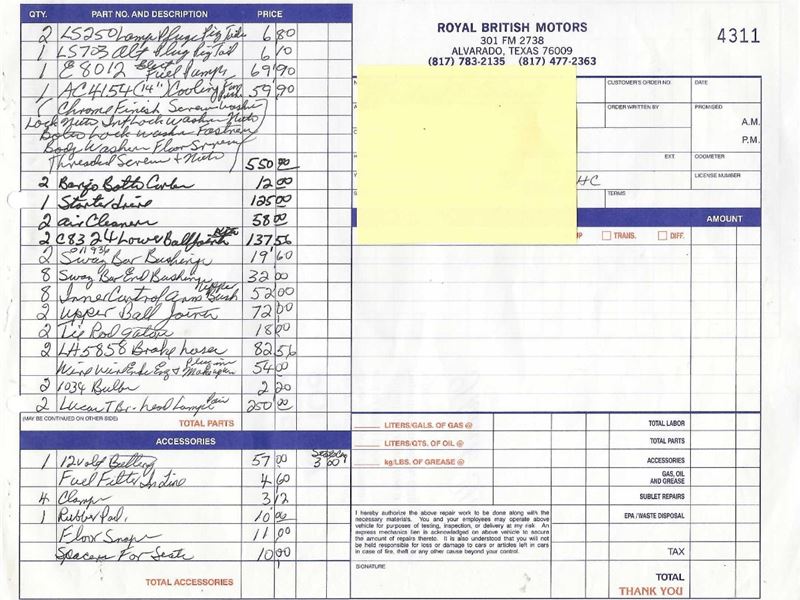 QTY. PART NO. AND DESCRIPTION PRICE
2 LS250 Lamp Plugs Pig Tails 6 80
1 LS703 Alt Plug Pig Tail 6 10
1 E8012 Elect Fuel Pump 69 90
1 AC4154 (14") Cooling Fan 59 90
(Chrome Finish Screw Washer
Lock Nuts Int Lock Washer Nuts
Bolts Lock Washer Fastners
Body Washer Floor
Threaded Screw + Nuts) 550 00
2 Banjo Bolts 12 00
1 Starter Drive 125 00
2 Air Cleaners 58 00
2 C8324 Lower Ball Joints 137 56
2 Sway Bar Bushings 19 60
8 Sway Bar End Bushings 32 00
8 Inner Control Arm Upper Bush 52 00
2 Upper Ball Joints 72 00
2 Tie Rod gators 18 00
2 LH5858 Brake hoses 82 56
Wire Wire Ends 54 00
2 1034 Bulbs 2 20
2 Lucas T Br. head Lamps pair 250 00
(MAY BE CONTINUED ON OTHER SIDE) TOTAL PARTS
ACCESSORIES
1 12 volt Battery 57 00 3 00
Fuel Filter In Line 4 60
4 Clamps 3 12
1 Rubber Pad 10 00
Floor Snaps 11 00
Spacers For Seats 10 00
TOTAL ACCESSORIES
ROYAL BRITISH MOTORS
301 FM 2738
ALVARADO, TEXAS 76009
(817) 783-2135 (817) 477-2363
4311
CUSTOMER'S ORDER NO. DATE
ORDER WRITTEN BY PROMISED
A.M.
P.M.
EXT. ODOMETER
HC LICENSE NUMBER
TERMS
AMOUNT
TRANS. DIFF.
LITERS/GALS. OF GAS @ TOTAL LABOR
LITERS/QTS. OF OIL @ TOTAL PARTS
kg/LBS. OF GREASE @ ACCESSORIES
GAS, OIL AND GREASE
SUBLET REPAIRS
EPA / WASTE DISPOSAL
TAX
TOTAL
THANK YOU
I hereby authorize the above repair work to be done along with the
necessary materials. You and your employees may operate above
vehicle for purposes of testing, inspection, or delivery at my risk. An
express mechanics lien is acknowledged on above vehicle to secure
the amount of repairs thereto. It is also understood that you will not
be held responsible for loss or damage to cars or articles left in cars
in case of fire, theft or any other cause beyond your control.
SIGNATURE